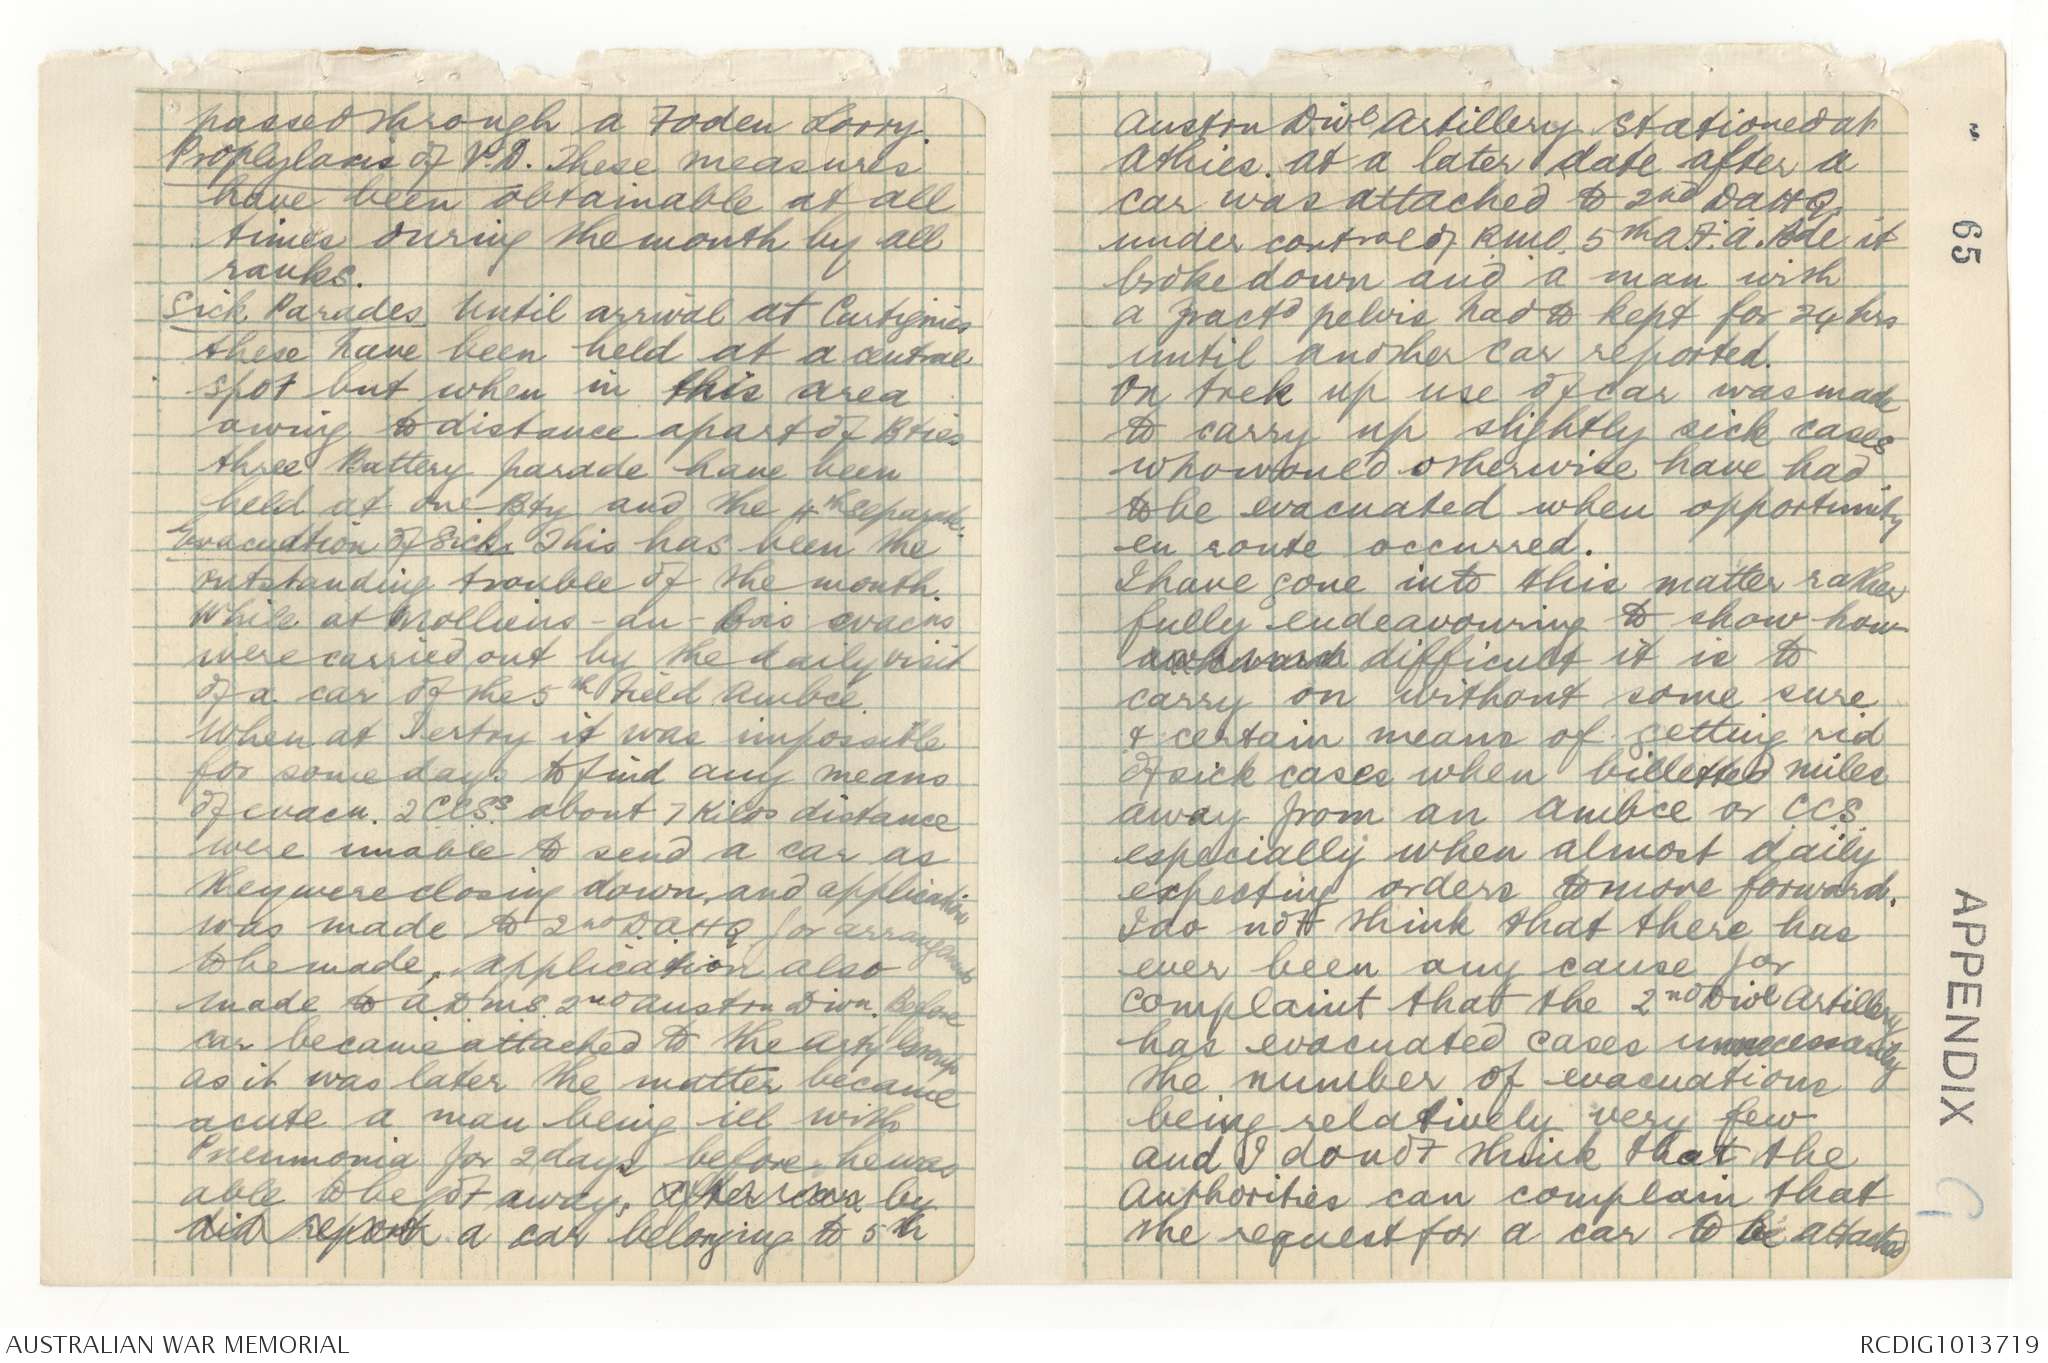 passed through a Foden Lorry.
Prophylaxis of V.D. These measures
have been obtainable at all
times during the month by all
ranks.
Sick Parades Until arrival at
these have been held at a central
spot but when in this area
owing to distance apart of Bties
three Battery parade have been
held at one Bty and the 4th separate.
Evacuation of Sick. This has been the
outstanding trouble of the month.
While at Molliens-au-Bois evacns
were carried out by the daily visit
of a car of the 5th Field Ambce.
When at it was impossible
for some days to find any means
of evacn. 2 CCSs about 7 Kilos distance
were unable to send a car as
they were closing down, and application
was made to 2nd DAHQ for arrangements
to be made, application also
made to A.D.M.S. 2nd Austrn Divn. Before
car became attached to the Arty Group
as it was later the matter became
acute a man being ill with
Pneumonia for 2 days before he was
able to be got away, by
a car belonging to 5th
Austrn Divl Artillery stationed at
Athies. At a later date after a
car was attached to 2nd DAHQ
under control of R.M.O. 5th A.F.A. Bde it
broke down and a man with
a fractd pelvis had to kept for 24 hrs
until another car reported.
On trek up use of car was made
to carry up slightly sick cases
who would otherwise have had
to be evacuated when opportunity
en route occurred.
I have gone into this matter rather
fully endeavouring to show how
awkward difficult it is to
carry on without some sure
& certain means of getting rid
of sick cases when billetted miles
away from an Ambce or CCS.
especially when almost daily
expecting orders to move forward.
I do not think that there has
ever been any cause for
complaint that the 2nd Divl Artillery
has evacuated cases unnecessarily
the number of evacuations
being relatively very few
and I do not think that the
Authorities can complain that
the request for a car to be attached
65
APPENDIX
AUSTRALIAN WAR MEMORIAL
RCDIG1013719